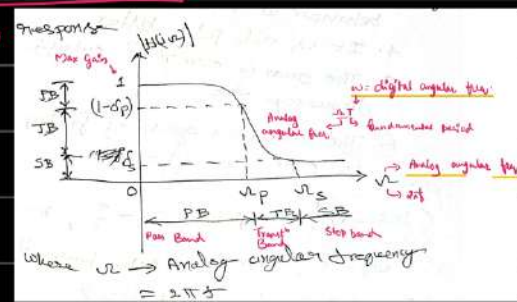 response
|H(jΩ)|
Max Gain
1
PB
(1-δp)
TB
SB
δs
0
Ωp
Ωs
Ω
ω = digital angular freq.
ΩT
Analog angular freq
fundamental period
→ Analog angular freq
↳ 2πf
PB
TB
SB
Pass Band
Transtn Band
Stop band
where Ω → Analog angular frequency
= 2πf